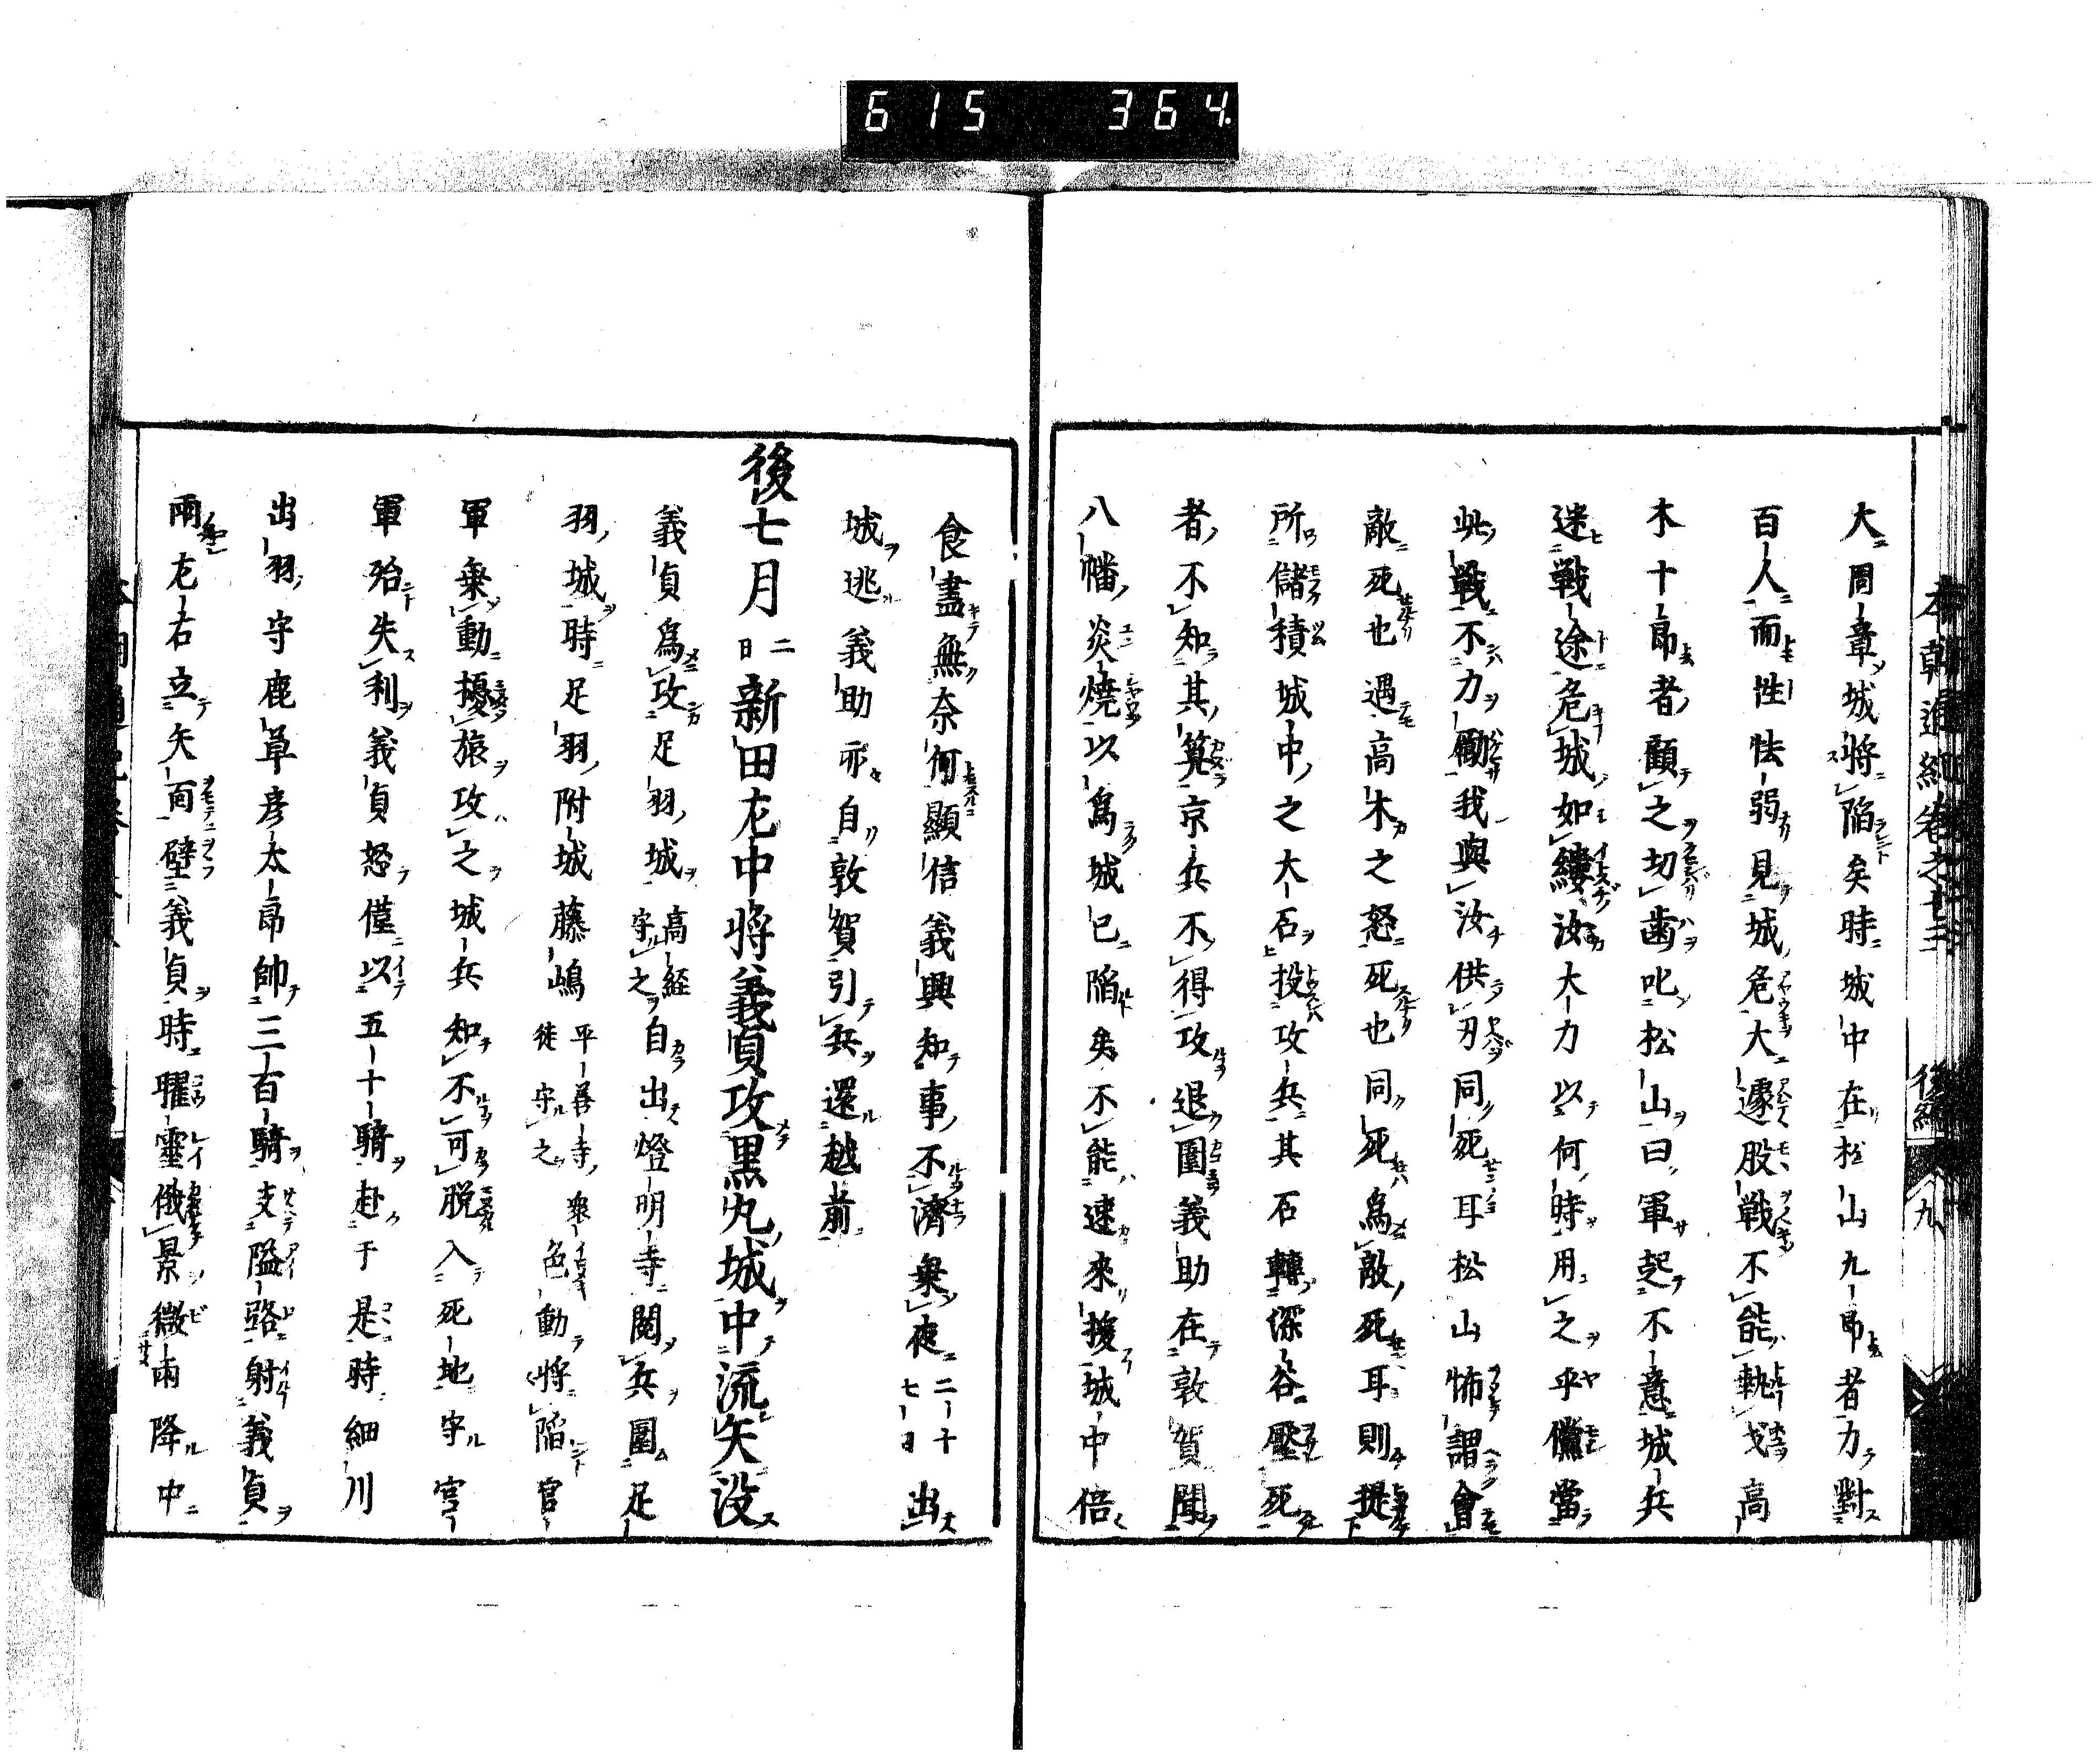 615 364.
本朝通紀卷之十三 後編 九
大周章城將陷矣時城中在松山九郎者力對
百人而性怯弱見城危大遽股戰不能執戈高
木十郎者顧之切齒叱松山曰軍起不意城兵
迷戰途危城如縷汝大力以何時用之乎儻當
此戰不力勵我與汝供刃同死耳松山怖謂會
敵死也遇高木之怒死也同死爲敵死耳則提
所儲積城中之大石投攻兵其石轉深谷壓死
者不知其筭京兵不得攻退圍義助在敦賀聞
八幡炎燒以爲城已陷矣不能速來援城中倍
食盡無奈何顯信義興知事不濟棄夜二十七日出
城逃義助亦自敦賀引兵還越前
後七月二日新田左中將義貞攻黒丸城中流矢没
義貞爲攻足羽城高経守之自出燈明寺閲兵圍足
羽城時足羽附城藤嶋平善寺衆徒守之色動將陷官
軍棄動擾旅攻之城兵知不可脱入死地守官
軍殆失利義貞怒僅以五十騎赴于是時細川
出羽守鹿草彦太郎帥三百騎支隘路射義貞
兩左右立矢面壁義貞時曜靈俄景微雨降中